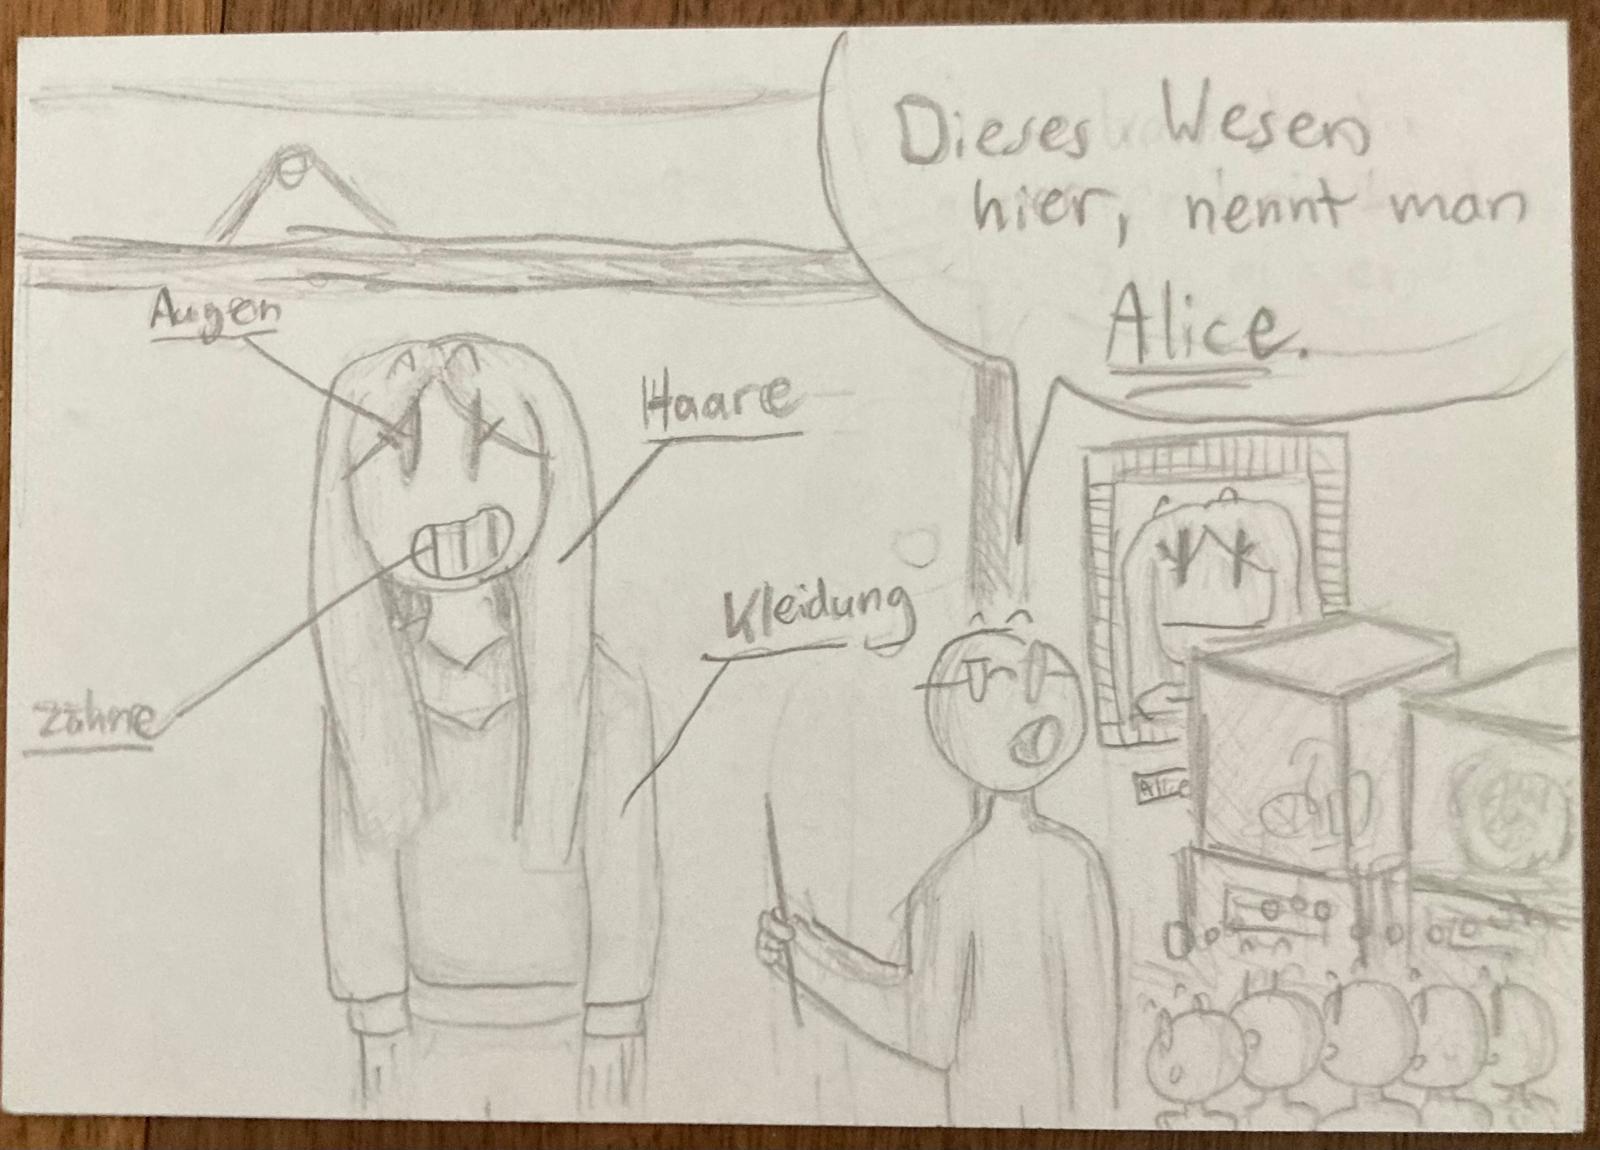 Dieses Wesen
hier, nennt man
Alice.
Augen
Haare
Kleidung
Zähne
Alice